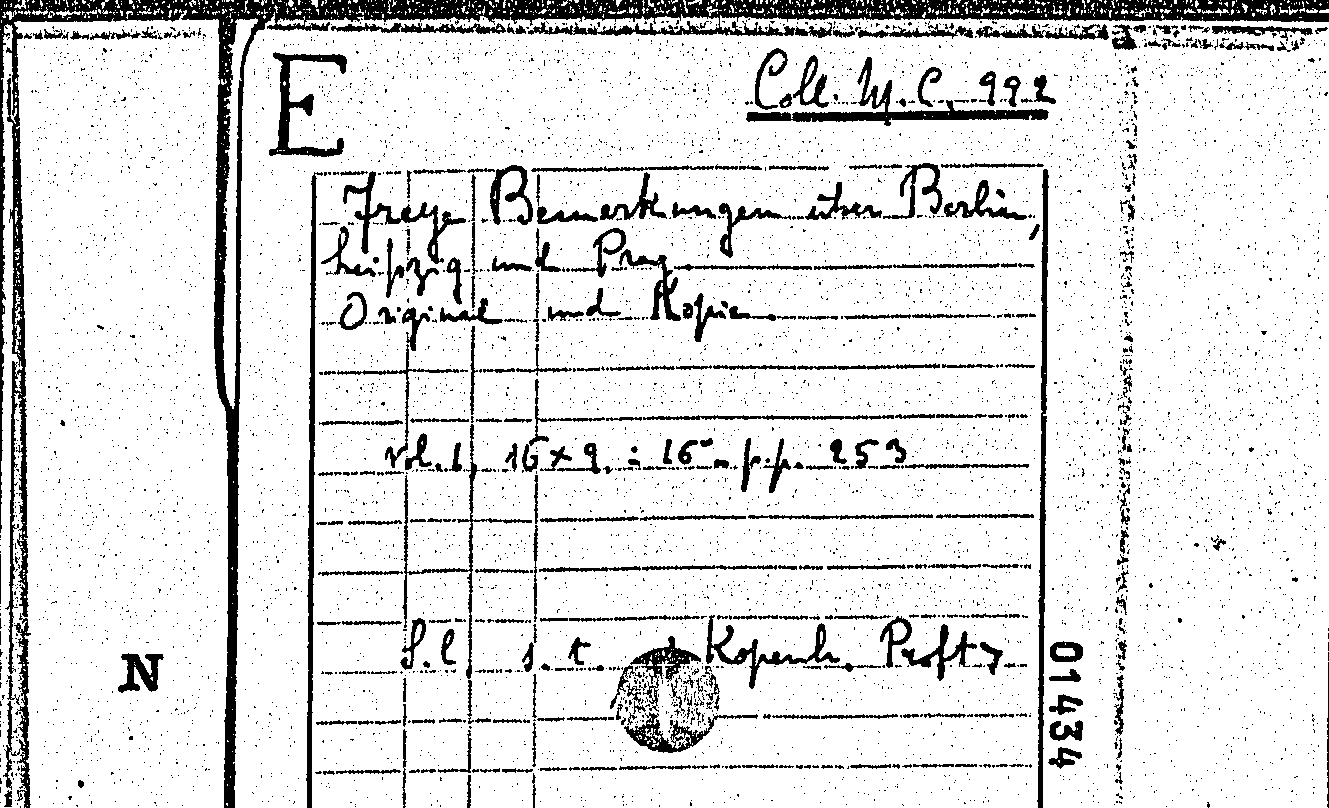 E
Coll. M. C. 992
Freye Bemerkungen über Berlin,
Leipzig und Prag.
Original und Kopie.
vol. 1, 16 x 9. = 16° p.p. 253
S. l. s. t. Kopenh. Proft
N
01434